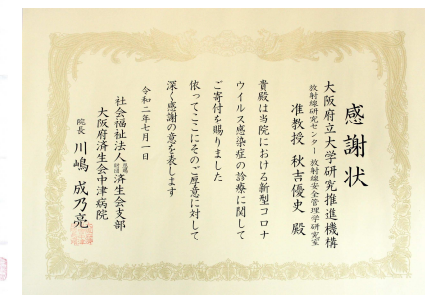 感謝状
大阪府立大学研究推進機構
放射線研究センター 放射線安全管理学研究室
准教授 秋吉優史 殿
貴殿は当院における新型コロナ
ウイルス感染症の診療に関して
ご寄付を賜りました
依ってここにそのご厚意に対して
深く感謝の意を表します
令和二年七月一日
社会福祉法人恩賜財団済生会支部
大阪府済生会中津病院
院長 川嶋成乃亮